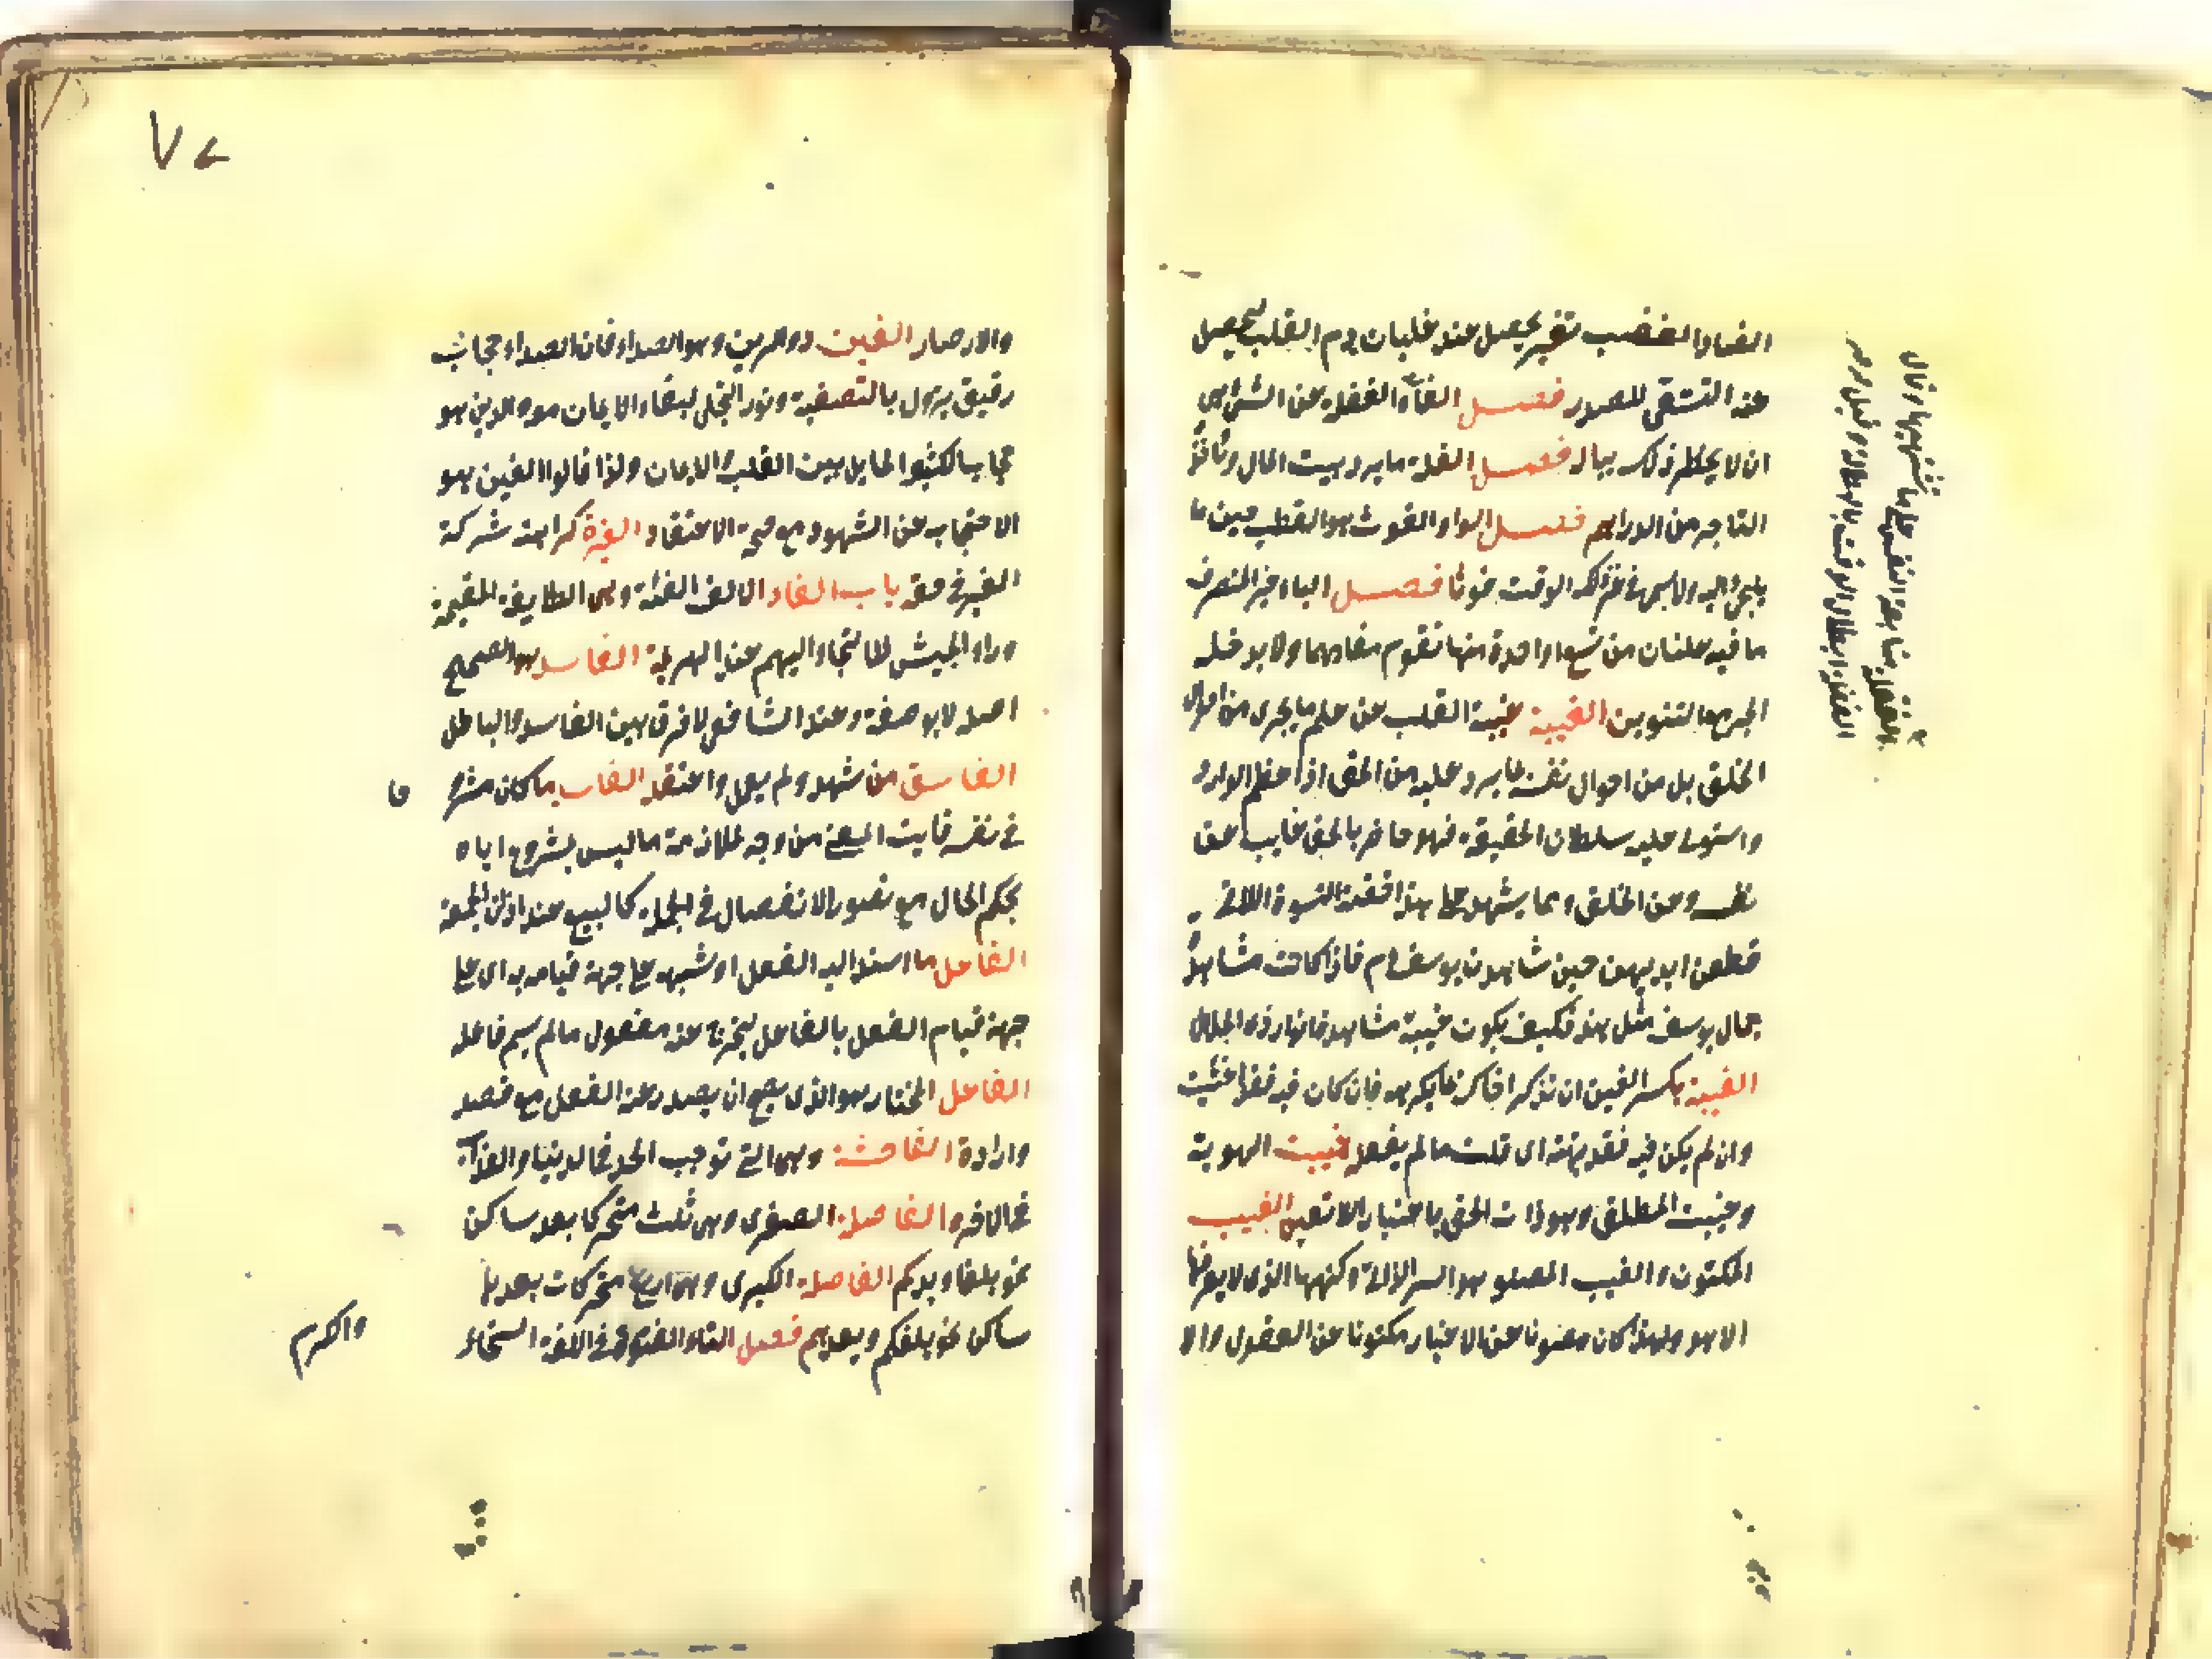 الضاد الغضب تغير يحصل عند غليان دم القلب ليحصل
عنه التشفى للصدر فصل الفاء الغفلة عن الشئ هى
ان لا يخطر ذلك بباله فصل اللام الغلة ما يرده بيت المال وتأخذه
التاجر من الدراهم فصل الواو الغوث هو القطب حين ما
يلتجئ اليه ولا يسمى فى غير ذلك الوقت غوثا فصل الياء غير المنصرف
ما فيه علتان من تسع او واحدة منها تقوم مقامهما ولا يدخله
الجر مع التنوين الغيبة غيبة القلب عن علم ما يجرى من احوال
الخلق بل من احوال نفسه بما يرد عليه من الحق اذا عظم الوارد
واستولى عليه سلطان الحقيقة فهو حاضر بالحق غايب عن
نفسه وعن الخلق ومما يشهد على هذا قصة النسوة اللاتى
قطعن ايديهن حين شاهدن يوسف ع م فاذا كانت مشاهدة
جمال يوسف مثل هذا فكيف يكون غيبة مشاهدة انوار ذى الجلال
الغيبة بكسر الغين ان تذكر اخاك بما يكرهه فان كان فيه فقد اغتبته
وان لم يكن فيه فقد بهته اى قلت ما لم يفعله غيب الهوية
وغيب المطلق وهو ذات الحق باعتبار اللاتعين الغيب
المكنون والغيب المصون هو السر الذاتى وكنهه الذى لا يعرفه
الا هو ولهذا كان مصونا عن الاغيار مكنونا عن العقول والا
٧٤
والابصار الغين دون الرين وهو الصداء فان الصداء حجاب
رقيق يزول بالتصفية ونور التجلى لبقاء الايمان معه والرين هو
حجاب الكثيف الحايل بين القلب والايمان ولذا قالوا الغين هو
الاحتجاب عن الشهود مع صحة الاعتقاد الغيرة كراهة شركة
الغير فى حقه باب الفاء الالف الفئة وهى الطايفة المقيمة
وراء الجيش للالتجاء اليهم عند الهزيمة الفاسد هو الصحيح
اصله لا بوصفه وعند الشافعى لا فرق بين الفاسد والباطل
الفاسق من شهد ولم يعمل واعتقد الفاسد ما كان مشروعا
فى نفسه فايت المعنى من وجه لملازمة ما ليس بمشروع اياه
بحكم الحال مع تصور الانفصال فى الجملة كالبيع عند اذان الجمعة
الفاعل ما اسند اليه الفعل او شبهه على جهة قيامه به اى على
جهة قيام الفعل بالفاعل ليخرج عنه مفعول ما لم يسم فاعله
الفاعل المختار هو الذى يصح ان يصدر عنه الفعل مع قصد
وارادة الفاحشة وهى التى توجب الحد فى الدنيا والعذاب
فى الاخرة الفاصلة الصغرى وهى ثلث متحركات بعد ساكن
نحو بلغا ويدكم الفاصلة الكبرى وهى اربع متحركات بعدها
ساكن نحو بلغكم ويعدهم فصل التاء الفتوة فى اللغة السخاء
والكرم